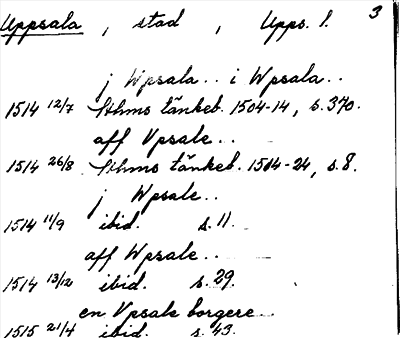 Uppsala, stad, Upps. l. 3
j Wpsala.. i Wpsala..
1514 12/7 Sthms tänkeb. 1504-14, s. 370.
aff Vpsale..
1514 26/8 Sthms tänkeb. 1514-24, s. 8.
j Wpsale..
1514 11/9 ibid. s. 11.
aff Wpsale..
1514 13/12 ibid. s. 29.
en Vpsale borgere..
1515 21/4 ibid. s. 43.